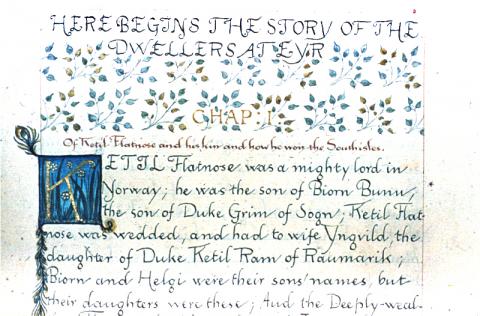 HERE BEGINS THE STORY OF THE
DWELLERS AT EYR
CHAP: I.
Of Ketil Flatnose and his kin and how he won the Southisles.
KETIL Flatnose was a mighty lord in
Norway; he was the son of Biorn Bunu,
the son of Duke Grim of Sogn; Ketil Flat-
nose was wedded, and had to wife Yngvild, the
daughter of Duke Ketil Ram of Raumarik;
Biorn and Helgi were their sons' names, but
their daughters were these; Aud the Deeply-weal-